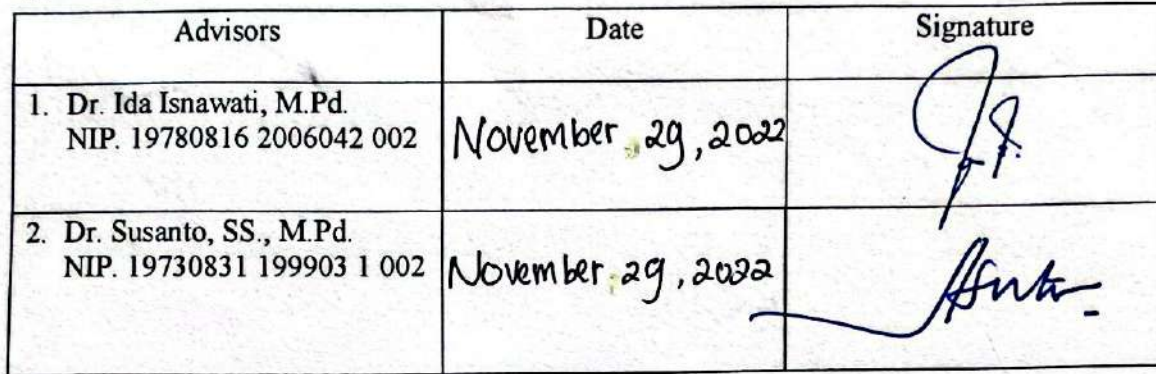 Advisors Date Signature
1. Dr. Ida Isnawati, M.Pd.
NIP. 19780816 2006042 002
November 29, 2022
2. Dr. Susanto, SS., M.Pd.
NIP. 19730831 199903 1 002
November 29, 2022